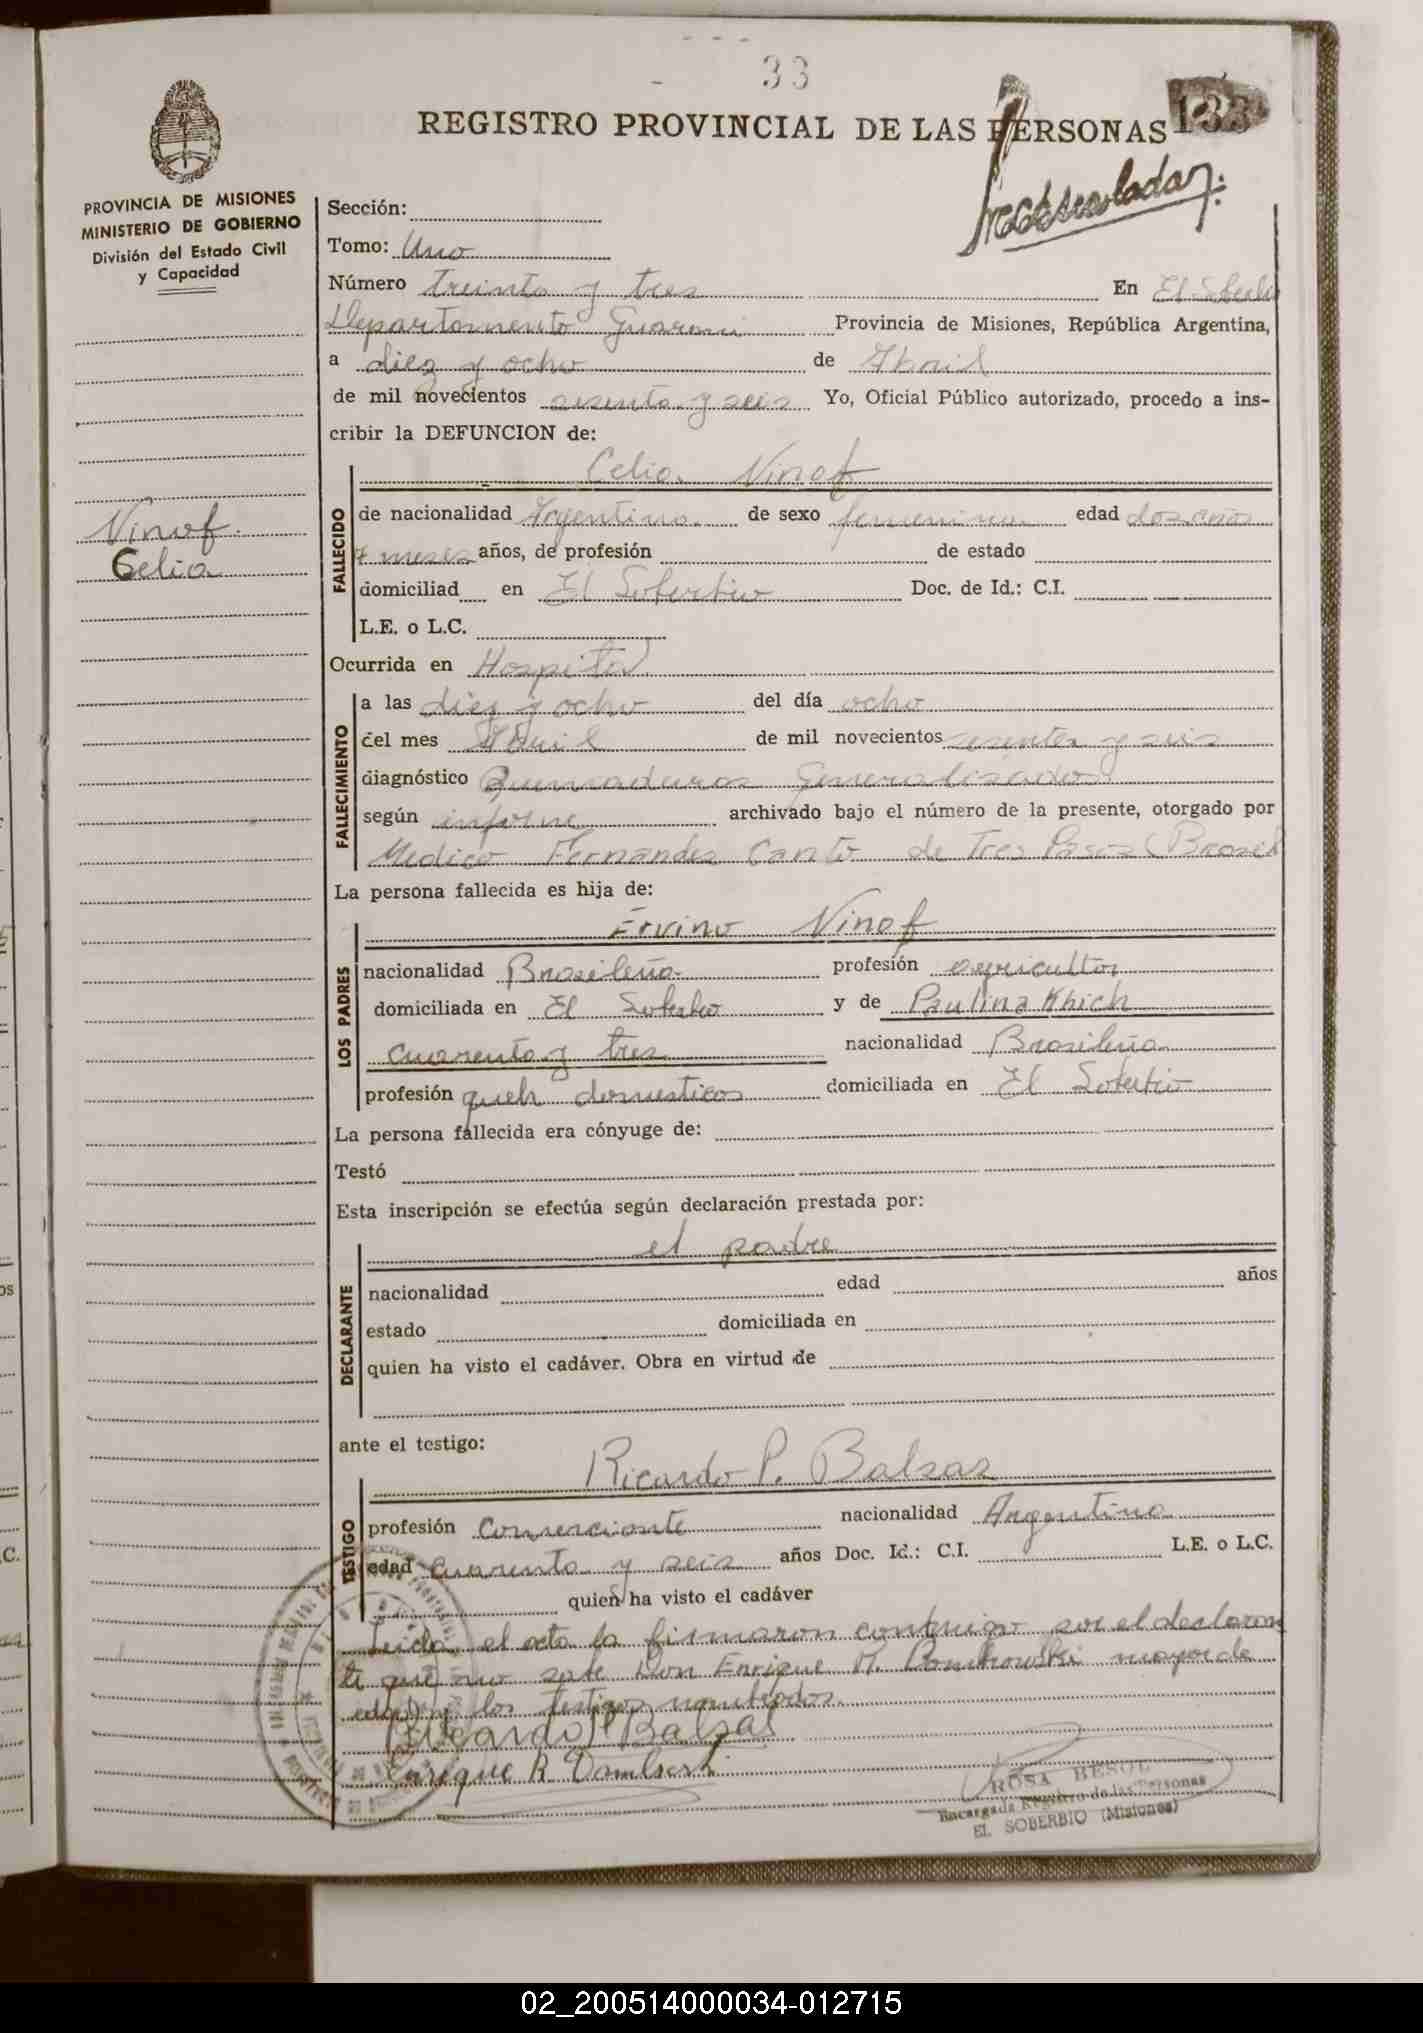 33
REGISTRO PROVINCIAL DE LAS PERSONAS 133
PROVINCIA DE MISIONES
MINISTERIO DE GOBIERNO
División del Estado Civil
y Capacidad
Vinof
Celia
Sección:
Tomo: Uno
Número treinta y tres En El Soberbio
Departamento Guarani Provincia de Misiones, República Argentina,
a diez y ocho de Abril
de mil novecientos sesenta y seis Yo, Oficial Público autorizado, procedo a ins-
cribir la DEFUNCION de:
Celia Vinof
FALLECIDO
de nacionalidad Argentina de sexo femenino edad dos años
7 meses años, de profesión de estado
domiciliad en El Soberbio Doc. de Id.: C.I.
L.E. o L.C.
Ocurrida en Hospital
FALLECIMIENTO
a las diez y ocho del día ocho
del mes Abril de mil novecientos sesenta y seis
diagnóstico Quemaduras Generalizadas
según informe archivado bajo el número de la presente, otorgado por
Medico Fernandes Canto de Tres Pasos (Brasil
La persona fallecida es hija de:
Ervino Vinof
LOS PADRES
nacionalidad Brasileña profesión agricultor
domiciliada en El Soberbio y de Paulina Khich
cuarenta y tres nacionalidad Brasileña
profesión queh domesticos domiciliada en El Soberbio
La persona fallecida era cónyuge de:
Testó
Esta inscripción se efectúa según declaración prestada por:
el padre
DECLARANTE
nacionalidad edad años
estado domiciliada en
quien ha visto el cadáver. Obra en virtud de
ante el testigo:
Ricardo P. Balsas
TESTIGO
profesión Comerciante nacionalidad Argentino
edad cuarenta y seis años Doc. Id.: C.I. L.E. o L.C.
quien ha visto el cadáver
Leida el acta la firmaron conmigo por el declaran
te que no sabe Don Enrique mayor de
edad y los testigos nombrados.
Ricardo P Balsas
Enrique R.
ROSA BESOL
Encargada Registro de las Personas
EL SOBERBIO (Misiones)
02_200514000034-012715